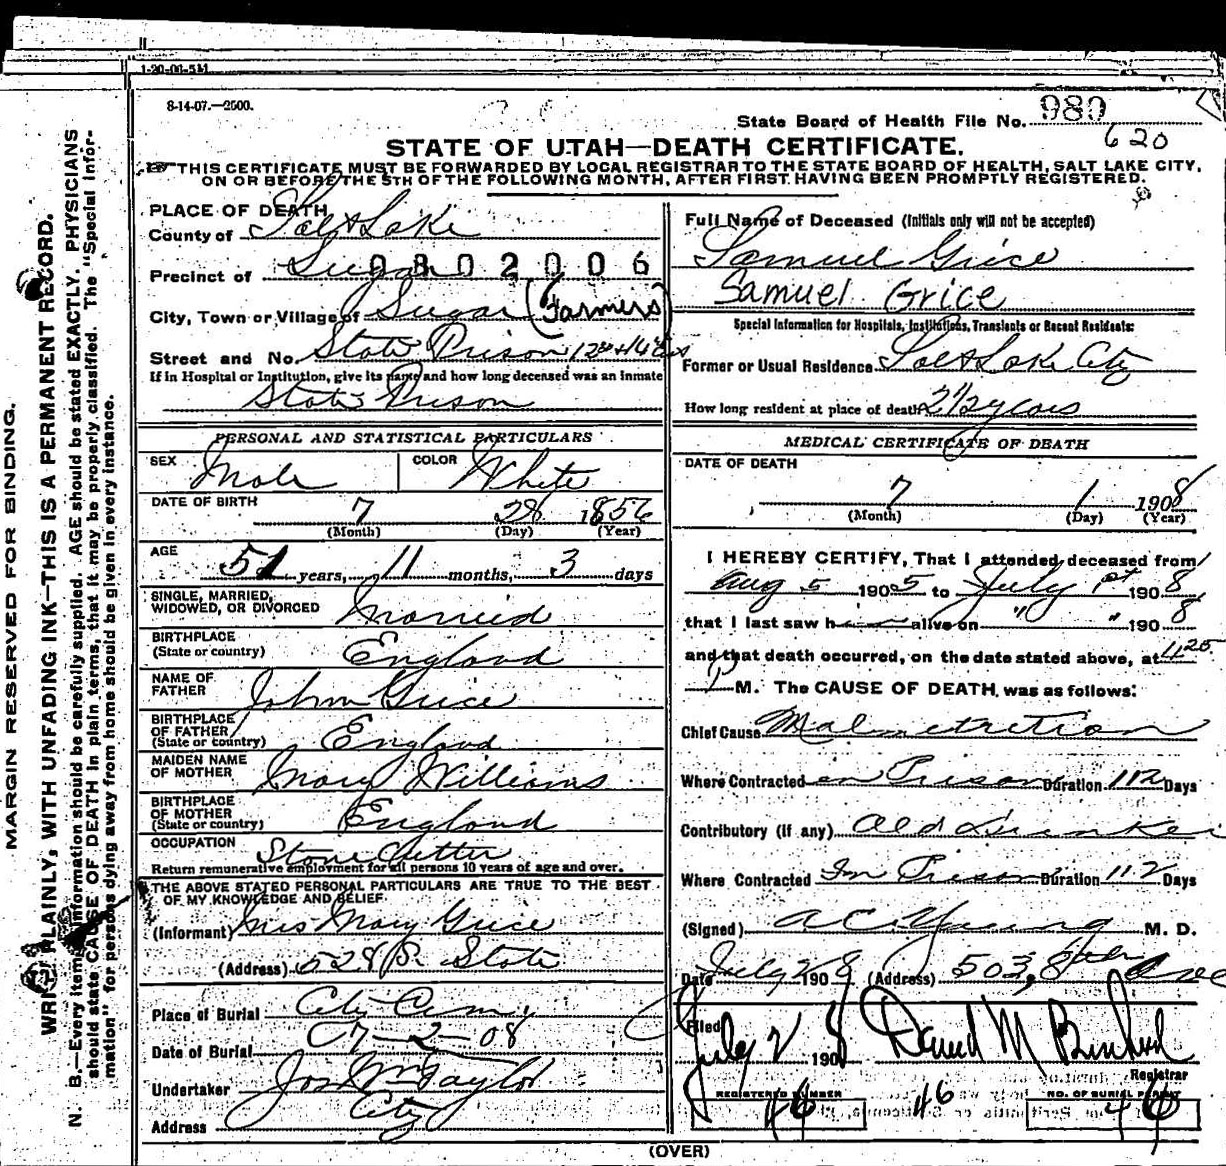 1-20-06-5M
8-14-07.—2500.
State Board of Health File No. 980
620
STATE OF UTAH—DEATH CERTIFICATE.
THIS CERTIFICATE MUST BE FORWARDED BY LOCAL REGISTRAR TO THE STATE BOARD OF HEALTH, SALT LAKE CITY,
ON OR BEFORE THE 5TH OF THE FOLLOWING MONTH, AFTER FIRST HAVING BEEN PROMPTLY REGISTERED.
MARGIN RESERVED FOR BINDING.
WRITE PLAINLY, WITH UNFADING INK—THIS IS A PERMANENT RECORD.
N. B.—Every item of information should be carefully supplied. AGE should be stated EXACTLY. PHYSICIANS
should state CAUSE OF DEATH in plain terms, that it may be properly classified. The "Special Infor-
mation" for persons dying away from home should be given in every instance.
PLACE OF DEATH
County of Salt Lake
Precinct of Sugar 0802006
City, Town or Village of Sugar (Farmers)
Street and No. State Prison 12th + 14 E
If in Hospital or Institution, give its name and how long deceased was an inmate
State Prison
PERSONAL AND STATISTICAL PARTICULARS
SEX Male COLOR White
DATE OF BIRTH 7 28 1856
(Month) (Day) (Year)
AGE 51 years, 11 months, 3 days
SINGLE, MARRIED,
WIDOWED, OR DIVORCED Married
BIRTHPLACE
(State or country) England
NAME OF
FATHER John Grice
BIRTHPLACE
OF FATHER
(State or country) England
MAIDEN NAME
OF MOTHER Mary Williams
BIRTHPLACE
OF MOTHER
(State or country) England
OCCUPATION Stone Cutter
Return remunerative employment for all persons 10 years of age and over.
THE ABOVE STATED PERSONAL PARTICULARS ARE TRUE TO THE BEST
OF MY KNOWLEDGE AND BELIEF
(Informant) Mrs Mary Grice
(Address) 528 So State
Place of Burial City Cem
Date of Burial 7-2-08
Undertaker Jos Wm Taylor
Address City
Full Name of Deceased (Initials only will not be accepted)
Samuel Grice
Samuel Grice
Special Information for Hospitals, Institutions, Transients or Recent Residents:
Former or Usual Residence Salt Lake City
How long resident at place of death 2 1/2 years
MEDICAL CERTIFICATE OF DEATH
DATE OF DEATH
7 1 1908
(Month) (Day) (Year)
I HEREBY CERTIFY, That I attended deceased from
Aug 5 1905 to July 1st 1908
that I last saw h alive on " " 1908
and that death occurred, on the date stated above, at 11 25
P M. The CAUSE OF DEATH was as follows:
Chief Cause Malnutrition
Where Contracted in Prison Duration 112 Days
Contributory (if any) Old Drunker
Where Contracted In Prison Duration 112 Days
(Signed) A C Young M. D.
Date July 2 1908 (Address) 503, 8
Filed
July 2 1908
Registrar
REGISTERED NUMBER NO. OF BURIAL PERMIT
46 46 44
(OVER)